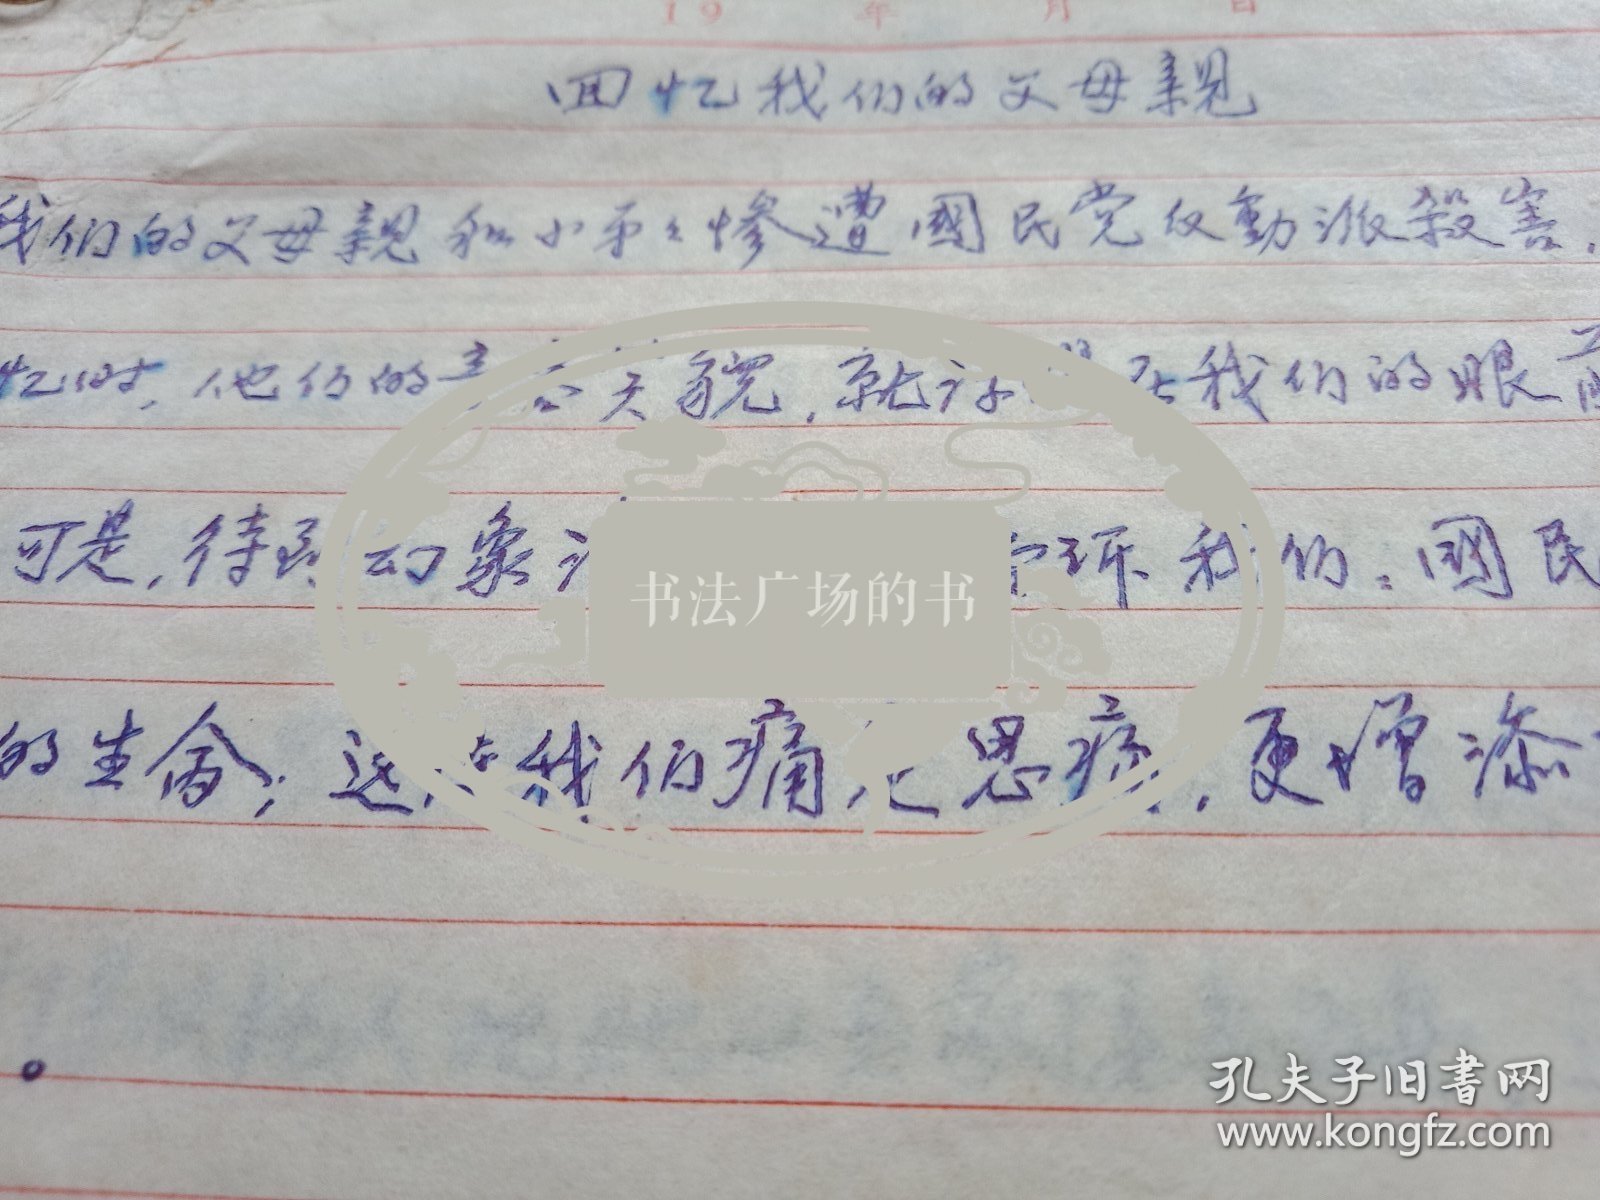 19 年 月 日
回忆我们的父母親
我们的父母親和小弟々惨遭國民党反動派殺害，
忆时，他们的音容笑貌，就 在我们的眼前
可是，待到幻象 环我们：國民
的生命；这 我们痛 思痛，更增添
。
书法广场的书
孔夫子旧書网
www.kongfz.com